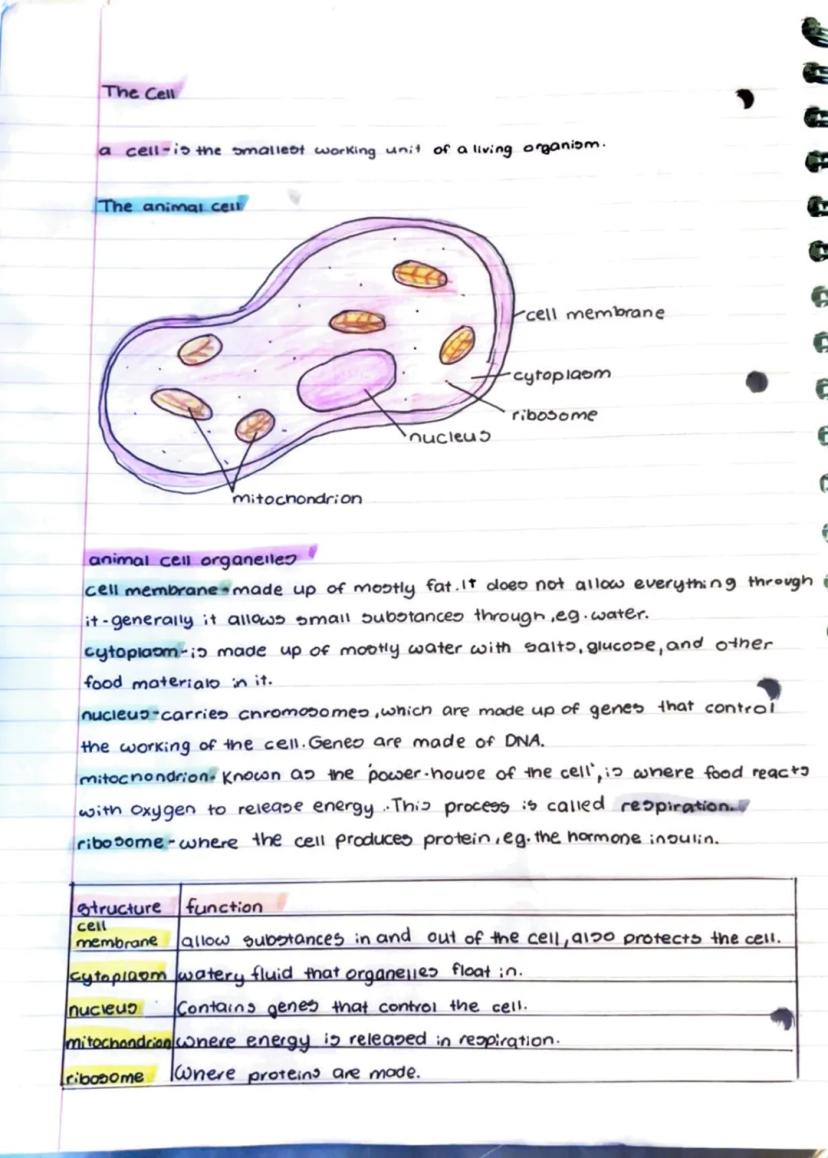 The Cell
a cell-is the smallest working unit of a living organism.
The animal cell
cell membrane
cytoplasm
ribosome
nucleus
mitochondrion
animal cell organelles
cell membrane-made up of mostly fat.It does not allow everything through
it-generally it allows small substances through,eg.water.
cytoplasm-is made up of mostly water with salts,glucose,and other
food materials in it.
nucleus-carries chromosomes,which are made up of genes that control
the working of the cell.Genes are made of DNA.
mitochondrion- Known as the 'power-house of the cell',is where food reacts
with oxygen to release energy.This process is called respiration.
ribosome-where the cell produces protein,eg.the hormone insulin.
structure function
cell
membrane allow substances in and out of the cell,also protects the cell.
cytoplasm watery fluid that organelles float in.
nucleus Contains genes that control the cell.
mitochondrion where energy is released in respiration.
ribosome Where proteins are made.